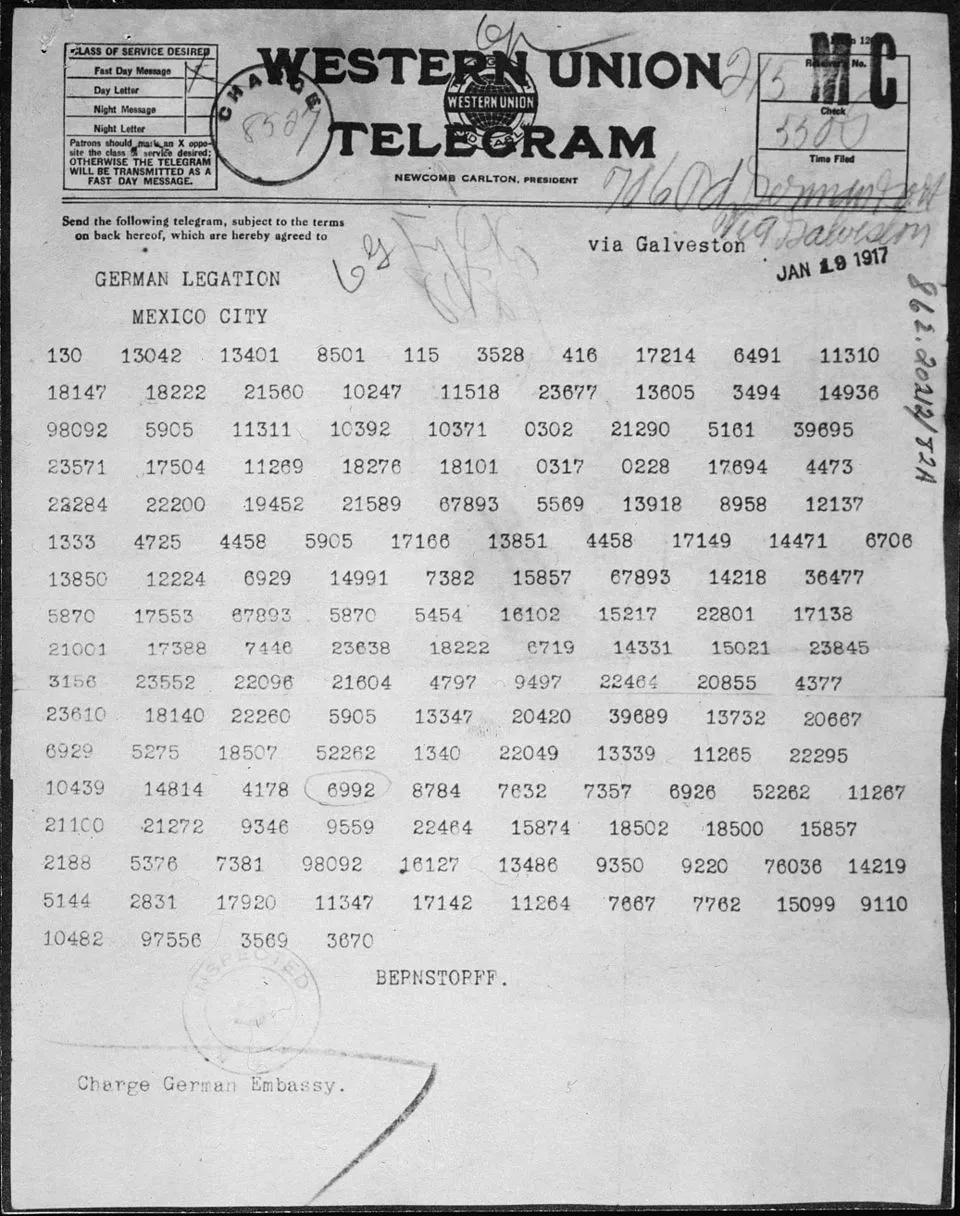 CLASS OF SERVICE DESIRED
Fast Day Message
Day Letter
Night Message
Night Letter
Patrons should mark an X oppo-
site the class of service desired:
OTHERWISE THE TELEGRAM
WILL BE TRANSMITTED AS A
FAST DAY MESSAGE.
CHARGE
WESTERN UNION
WESTERN UNION
TELEGRAM
NEWCOMB CARLTON, PRESIDENT
MC
Receiver's No.
Check
Time Filed
215
Send the following telegram, subject to the terms
on back hereof, which are hereby agreed to
via Galveston
Via Galveston
JAN 19 1917
GERMAN LEGATION
MEXICO CITY
130 13042 13401 8501 115 3528 416 17214 6491 11310
18147 18222 21560 10247 11518 23677 13605 3494 14936
98092 5905 11311 10392 10371 0302 21290 5161 39695
23571 17504 11269 18276 18101 0317 0228 17694 4473
22284 22200 19452 21589 67893 5569 13918 8958 12137
1333 4725 4458 5905 17166 13851 4458 17149 14471 6706
13850 12224 6929 14991 7382 15857 67893 14218 36477
5870 17553 67893 5870 5454 16102 15217 22801 17138
21001 17388 7446 23638 18222 6719 14331 15021 23845
3156 23552 22096 21604 4797 9497 22464 20855 4377
23610 18140 22260 5905 13347 20420 39689 13732 20667
6929 5275 18507 52262 1340 22049 13339 11265 22295
10439 14814 4178 6992 8784 7632 7357 6926 52262 11267
21100 21272 9346 9559 22464 15874 18502 18500 15857
2188 5376 7381 98092 16127 13486 9350 9220 76036 14219
5144 2831 17920 11347 17142 11264 7667 7762 15099 9110
10482 97556 3569 3670
BEPNSTOPFF.
INSPECTED
Charge German Embassy.
862.20212/82A